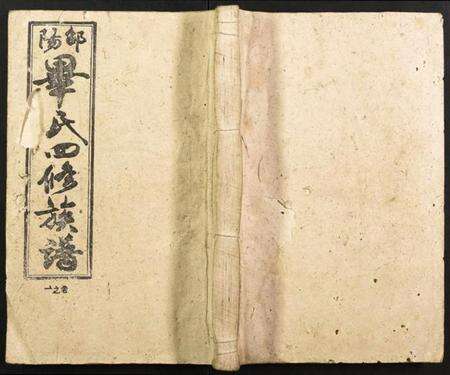 防
畢氏四修族譜
卷之一